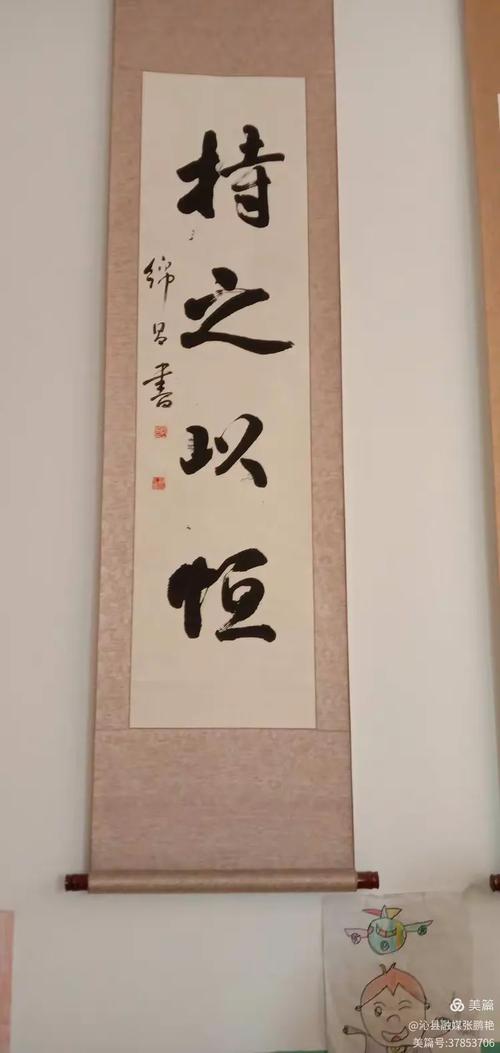 持之以恒
绵昌书
美篇
@沁县融媒张鹏艳
美篇号:37853706